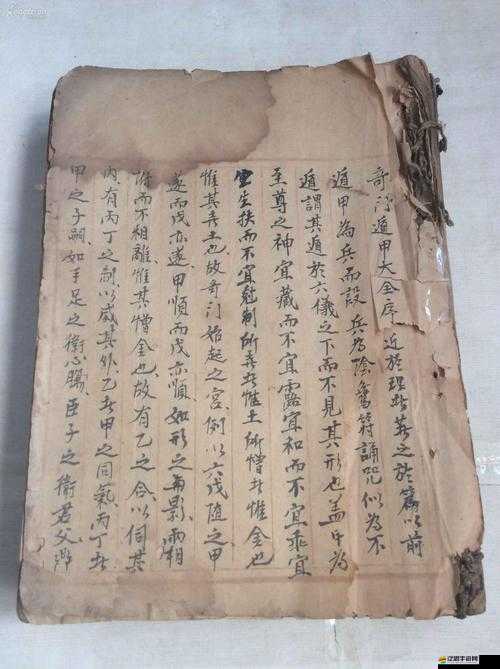 奇门遁甲大全序 近於理 之於篇以前
遁甲為兵而設兵乃陰 符誦咒似為不
遁謂其遁於六儀之下而不見其形也盖甲為
至尊之神宜藏而不宜露宜和而不宜乖宜
生扶而不宜尅制所喜者惟土所憎者惟金也
惟其喜土也故奇门始起之宮例以六戊随之甲
遂而戊亦遂甲順而戊亦順如形之與影兩相
附而不相離惟其憎金也故有乙之合以伺其
內有丙丁之制以威其外乙者甲之同氣丙丁者
甲之子嗣如手足之衛心腹臣子之衛君父